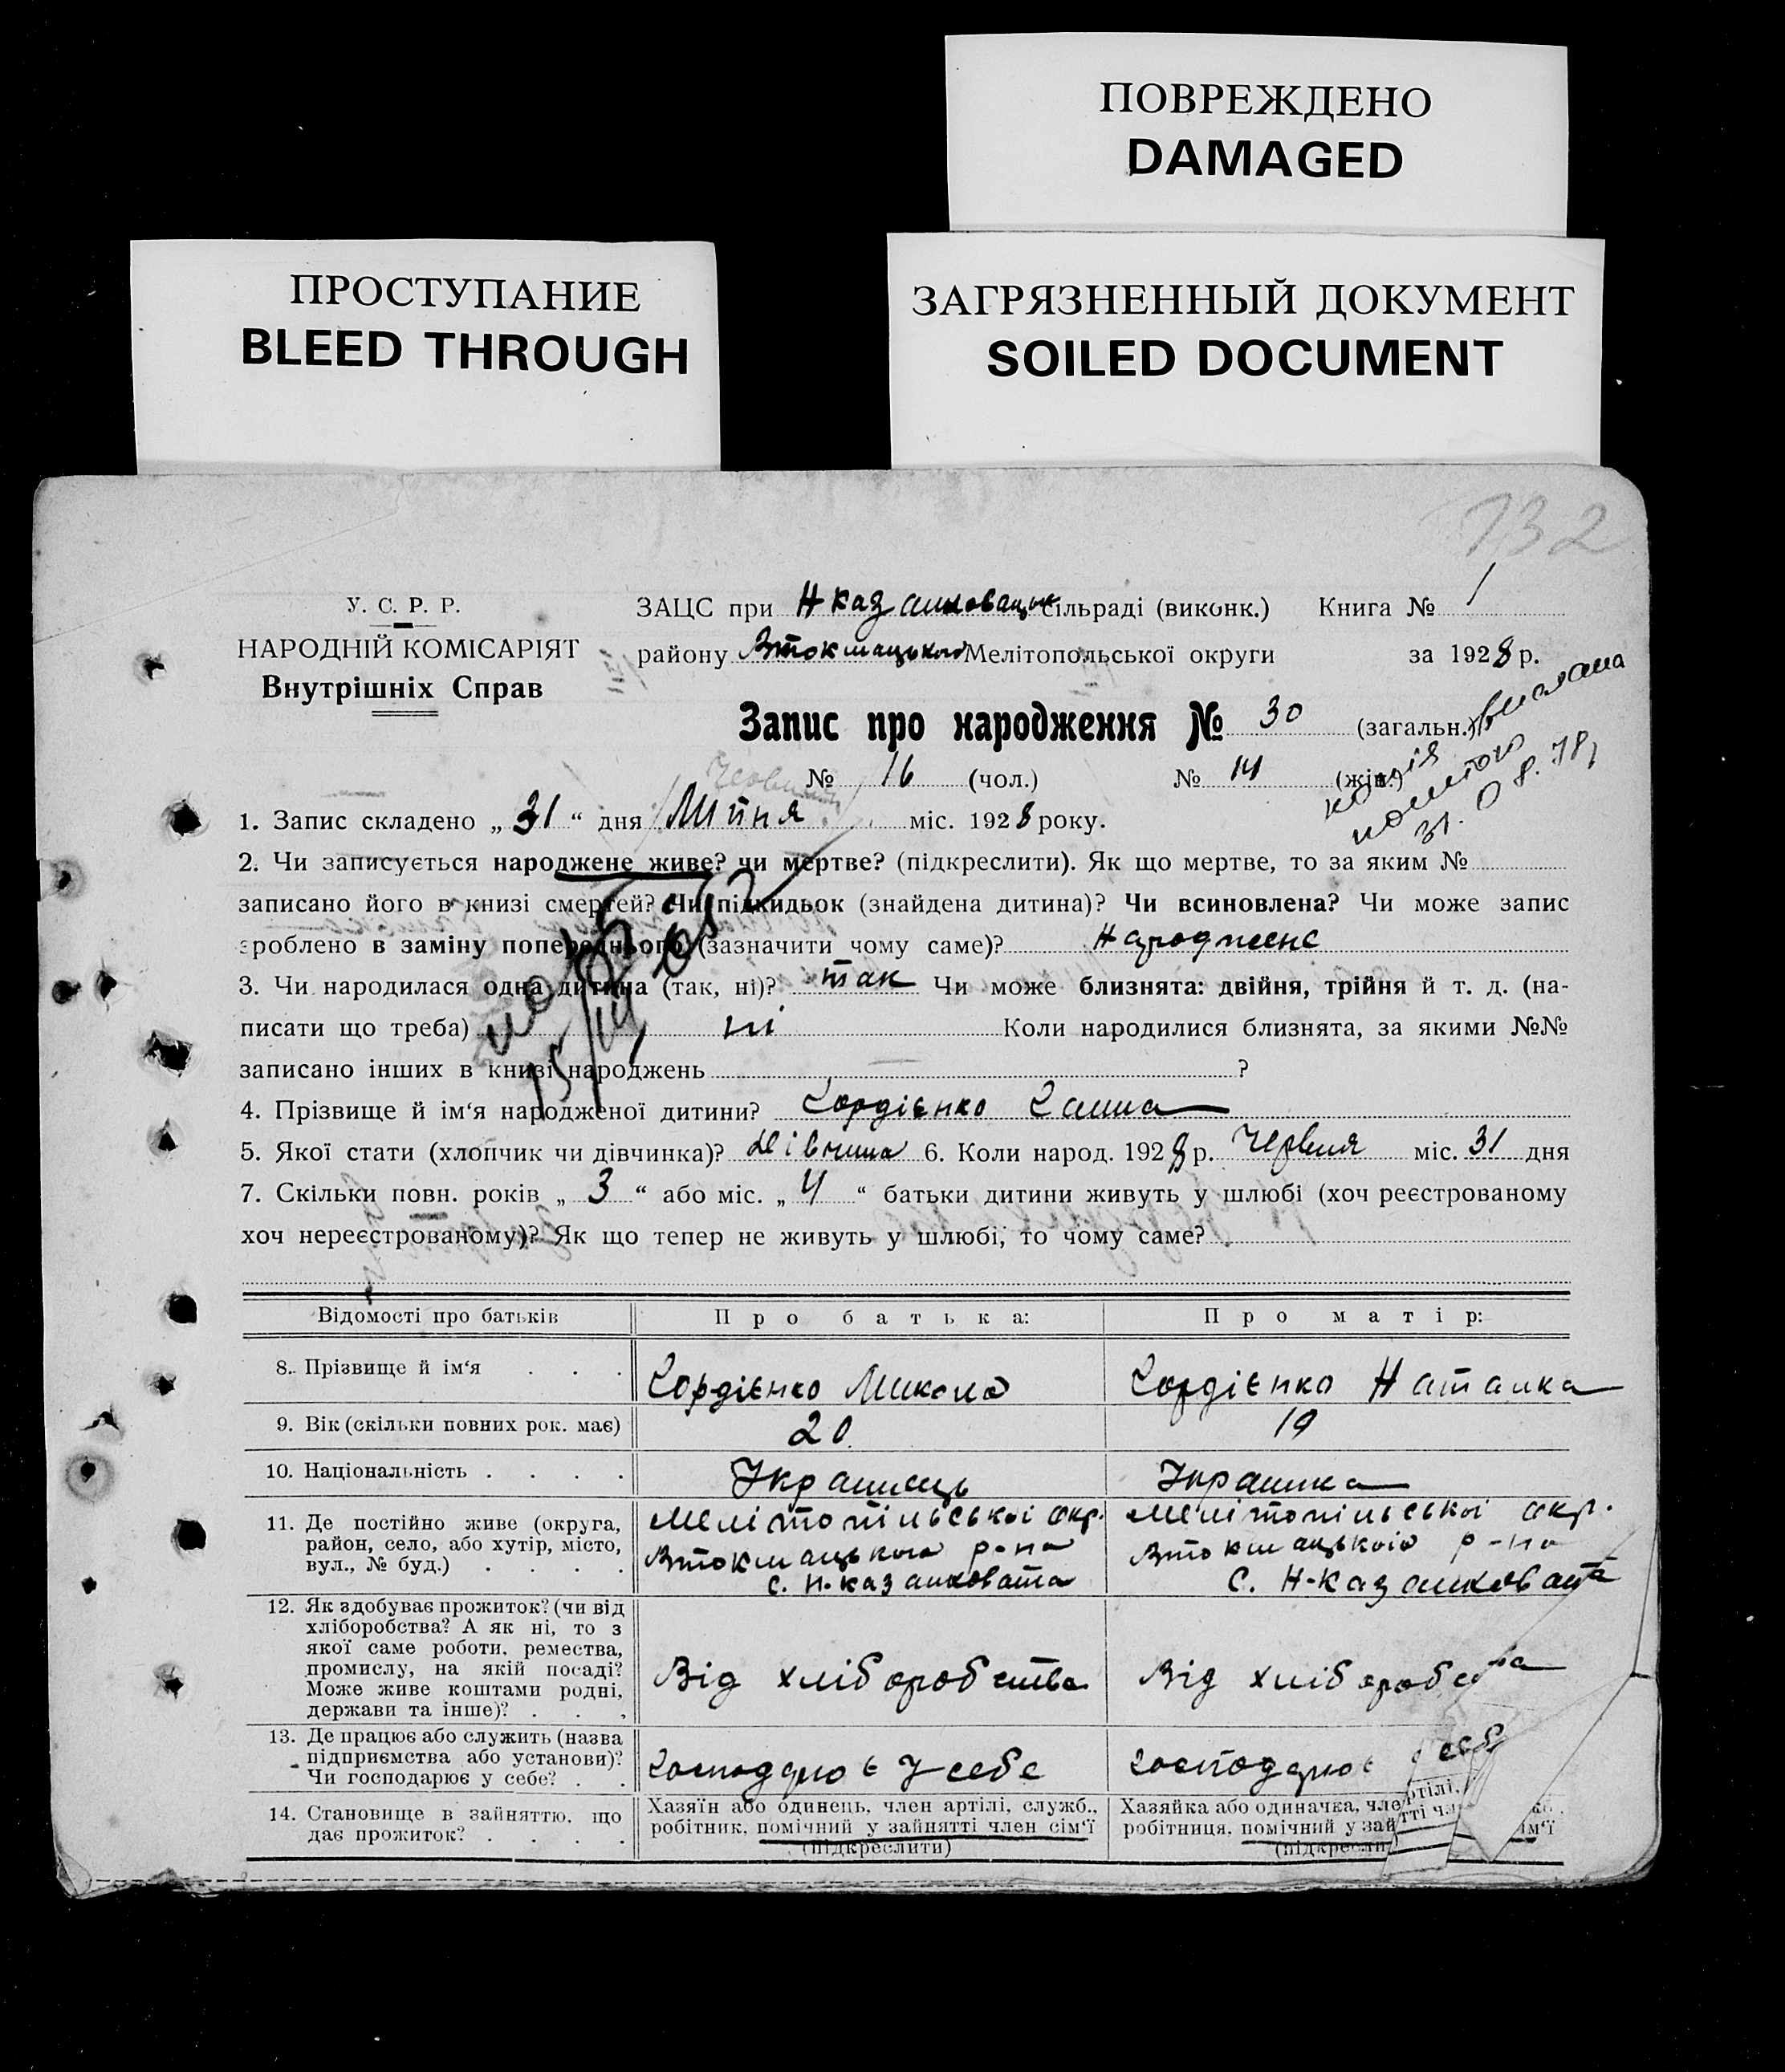 ПОВРЕЖДЕНО
DAMAGED
ПРОСТУПАНИЕ
BLEED THROUGH
ЗАГРЯЗНЕННЫЙ ДОКУМЕНТ
SOILED DOCUMENT
132
У. С. Р. Р.
НАРОДНІЙ КОМІСАРІЯТ
Внутрішніх Справ
ЗАЦС при сільраді (виконк.) Книга № 1
району Втокмацького Мелітопольської округи за 1928 р.
Запис про народження № 30 (загальн.)
№ 16 (чол.) № 14 (жін.)
копія вислана
поштою
31.08.78
1. Запис складено „ 31 “ дня Липня міс. 1928 року.
2. Чи записується народжене живе? чи мертве? (підкреслити). Як що мертве, то за яким №
записано його в книзі смертей? Чи підкидьок (знайдена дитина)? Чи всиновлена? Чи може запис
зроблено в заміну попереднього (зазначити чому саме)? Народжене
3. Чи народилася одна дитина (так, ні)? так Чи може близнята: двійня, трійня й т. д. (на-
писати що треба) ні Коли народилися близнята, за якими №№
записано інших в книзі народжень ?
4. Прізвище й ім‘я народженої дитини? Гордієнко Ганна
5. Якої стати (хлопчик чи дівчинка)? Дівчина 6. Коли народ. 1928 р. Червня міс. 31 дня
7. Скільки повн. років „ 3 “ або міс. „ 4 “ батьки дитини живуть у шлюбі (хоч реєстрованому
хоч нереєстрованому)? Як що тепер не живуть у шлюбі, то чому саме?
Відомості про батьків Про батька: Про матір:
8. Прізвище й ім‘я Гордієнко Микола Гордієнко Наталка
9. Вік (скільки повних рок. має) 20 19
10. Національність Українець Українка
11. Де постійно живе (округа, район, село, або хутір, місто, вул., № буд.)
Мелітопільської окр.
Втокмацького р-на
с. Н-Казанковата
Мелітопільської окр.
Втокмацького р-на
С. Н-Казанковата
12. Як здобуває прожиток? (чи від
хліборобства? А як ні, то з
якої саме роботи, ремества,
промислу, на якій посаді?
Може живе коштами родні,
держави та інше)?
Від хліборобства Від хліборобства
13. Де працює або служить (назва
підприємства або установи)?
Чи господарює у себе?
Господарює у себе Господарює у себе
14. Становище в зайняттю, що
дає прожиток?
Хазяїн або одинець, член артілі, служб.,
робітник, помічний у зайнятті член сім‘ї
(підкреслити)
Хазяйка або одиначка, чле
робітниця, помічний у зай